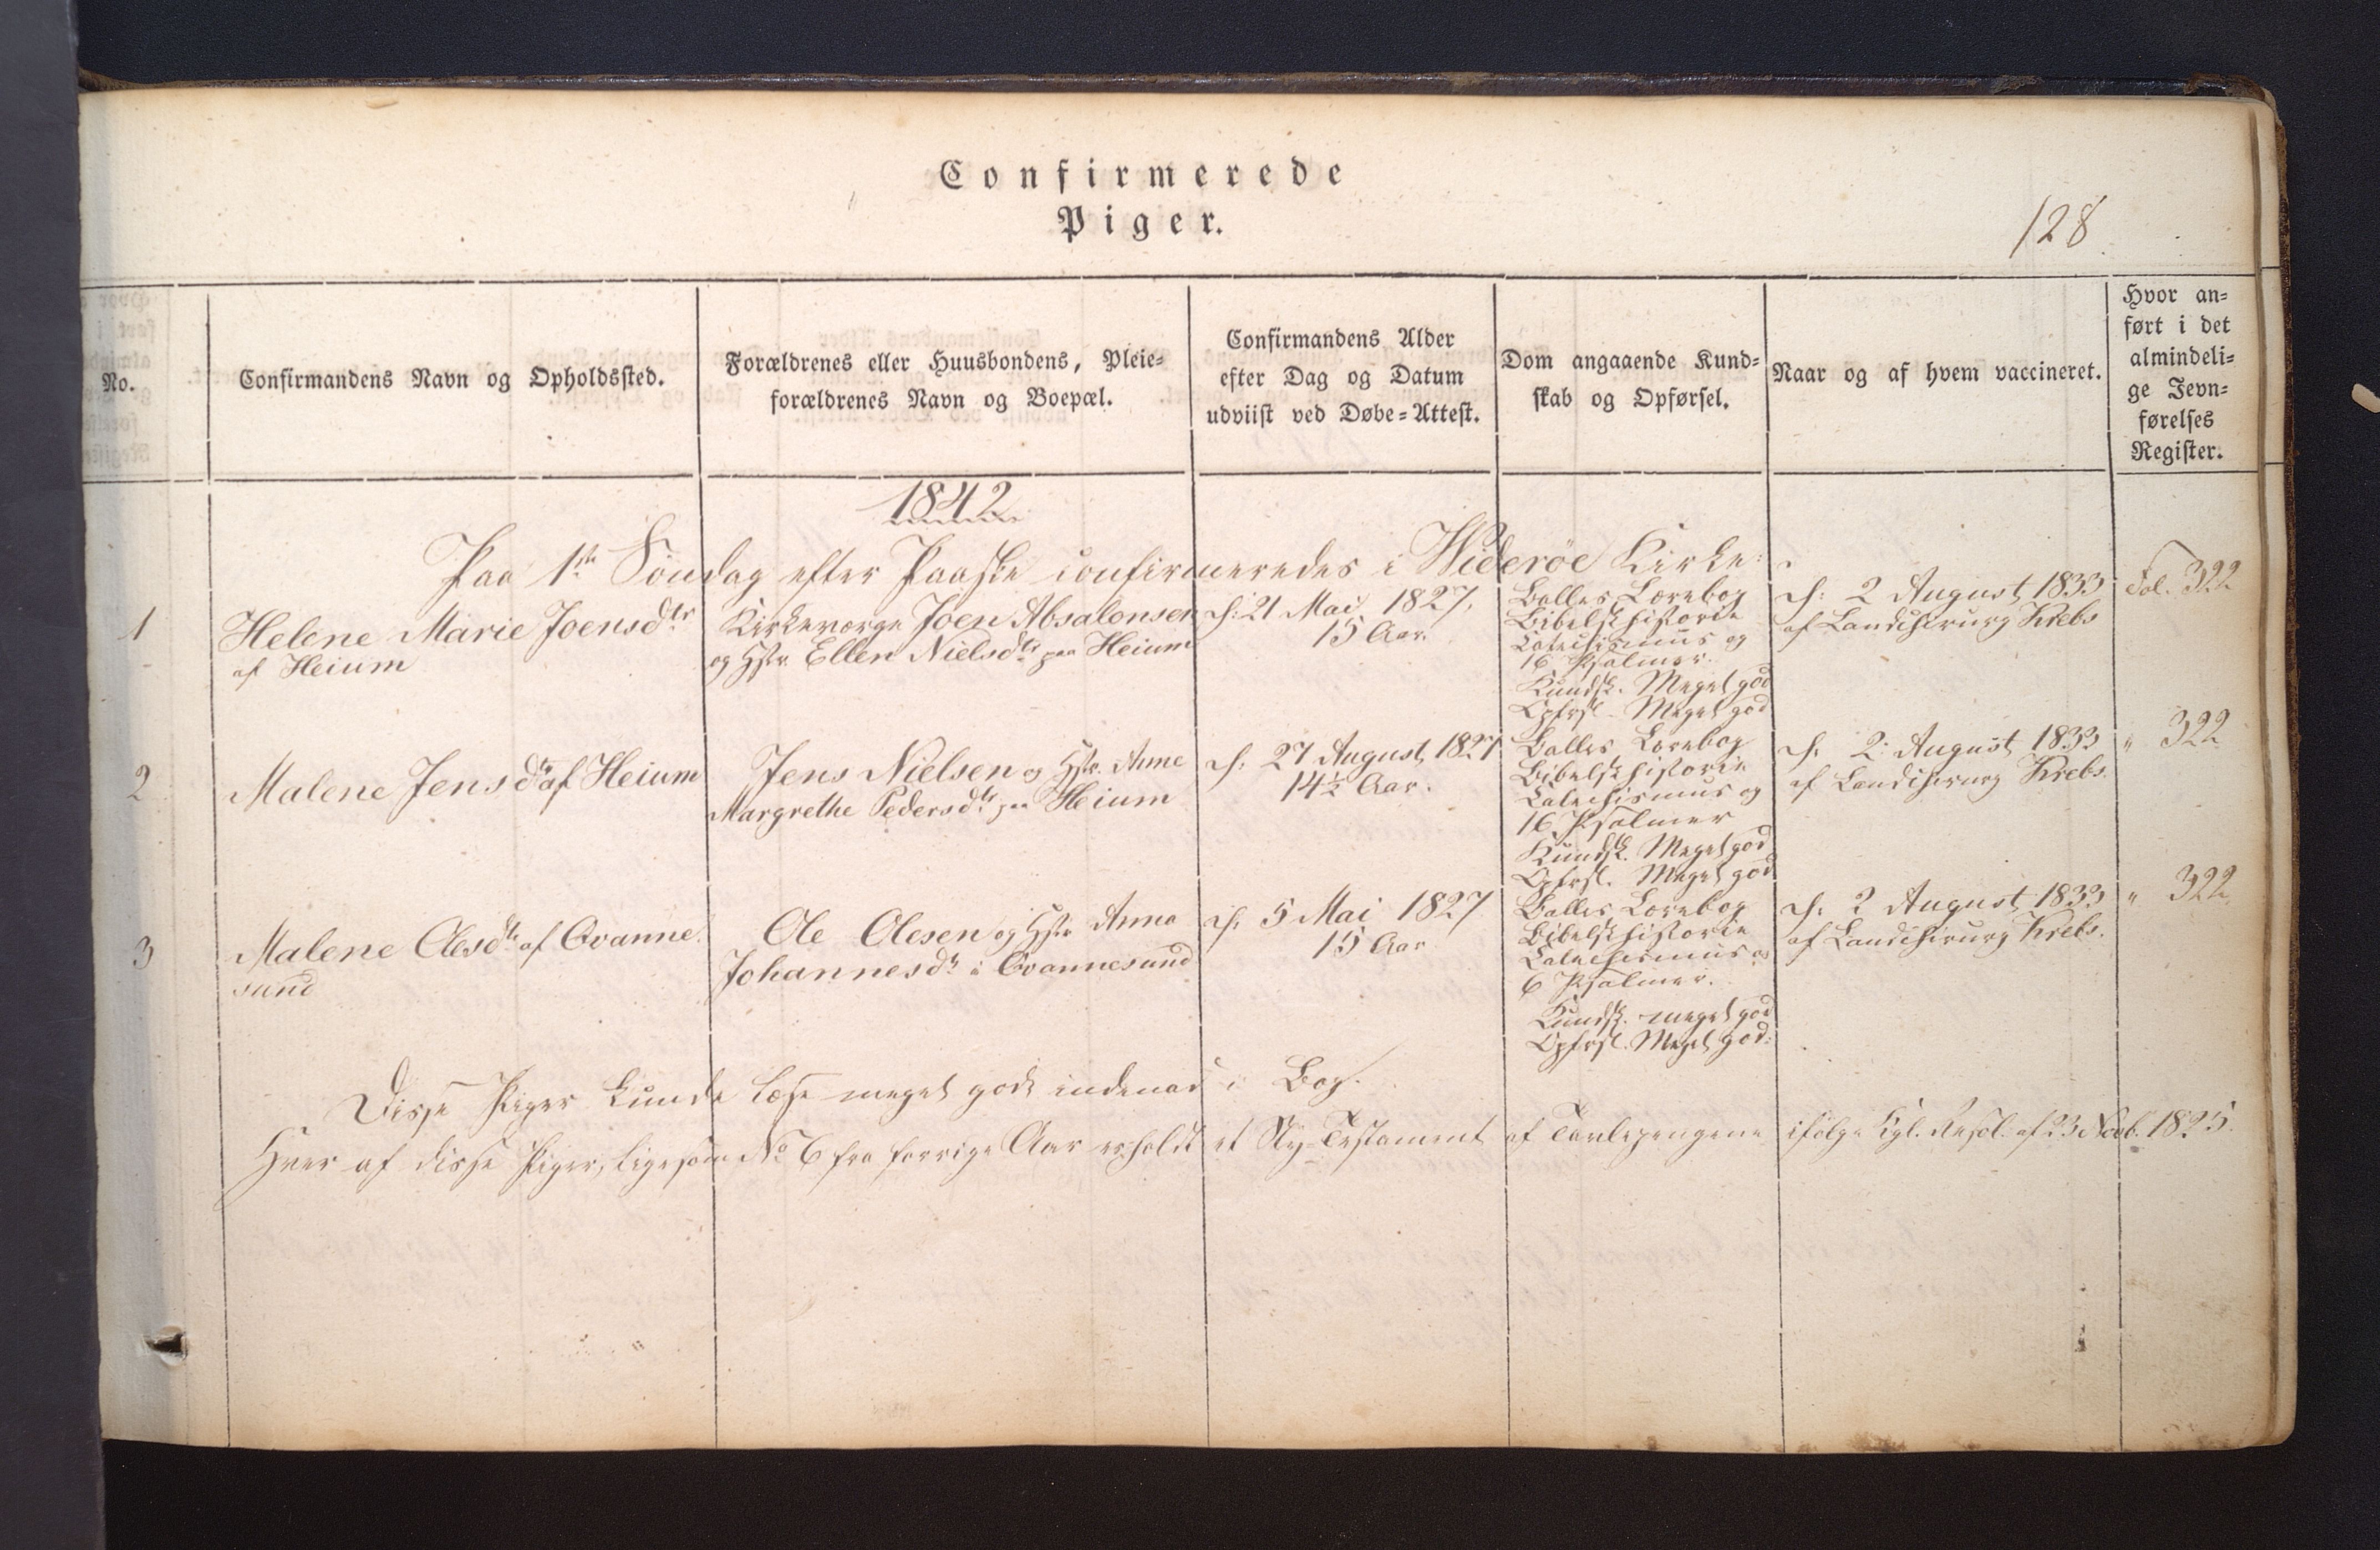 Confirmerede
Piger.
128
No.
Confirmandens Navn og Opholdssted.
Forældrenes eller Huusbondens, Pleie-
forældrenes Navn og Boepæl.
Confirmandens Alder
efter Dag og Datum
udviist ved Døbe-Attest.
Dom angaaende Kund-
skab og Opførsel.
Naar og af hvem vaccineret.
Hvor an-
ført i det
almindeli-
ge Jevn-
førelses
Register.
1842
Paa 1ste Søndag efter Paaske confirmeredes i Wideröe Kirke:
1
Helene Marie Joensdtr
af Heium
Kirkeværge Joen Absalonsen
og Hstr. Ellen Nielsdtr paa Heium
d: 21 Mai 1827,
15 Aar.
Balles Lærebog
Bibelskhistorie
Catechismus og
16 Psalmer.
Kundsk. Meget god
Opfrsl. Meget god
d: 2 August 1833
af Landchirurg Krebs
Fol. 322
2
Malene Jensdtr af Heium
Jens Nielsen og Hstr. Anne
Margrethe Pedersdtr paa Heium
d: 27 August 1827
14½ Aar.
Balles Lærebog
Bibelskhistorie
Catechismus og
16 Psalmer
Kundsk. Meget god
Opfrsl. Meget god
d: 2: August 1833
af Landchirurg Krebs.
" 322
3
Malene Olesdtr af Qvanne-
sund
Ole Olesen og Hstr Anna
Johannesdtr i Qvannesund
d: 5 Mai 1827
15 Aar
Balles Lærebog
Bibelskhistorie
Catechismus og
6 Psalmer.
Kundsk. meget god
Opfrsl. Meget god:
d: 2 August 1833
af Landchirurg Krebs.
" 322
Disse Piger kunde læse meget godt indenad i Bog.
Hver af disse Piger, ligesom No 6 fra forrige Aar erholdt et Ny-Testament af Tavlepengene ifølge Kgl. Resol. af 23 Novb. 1825.